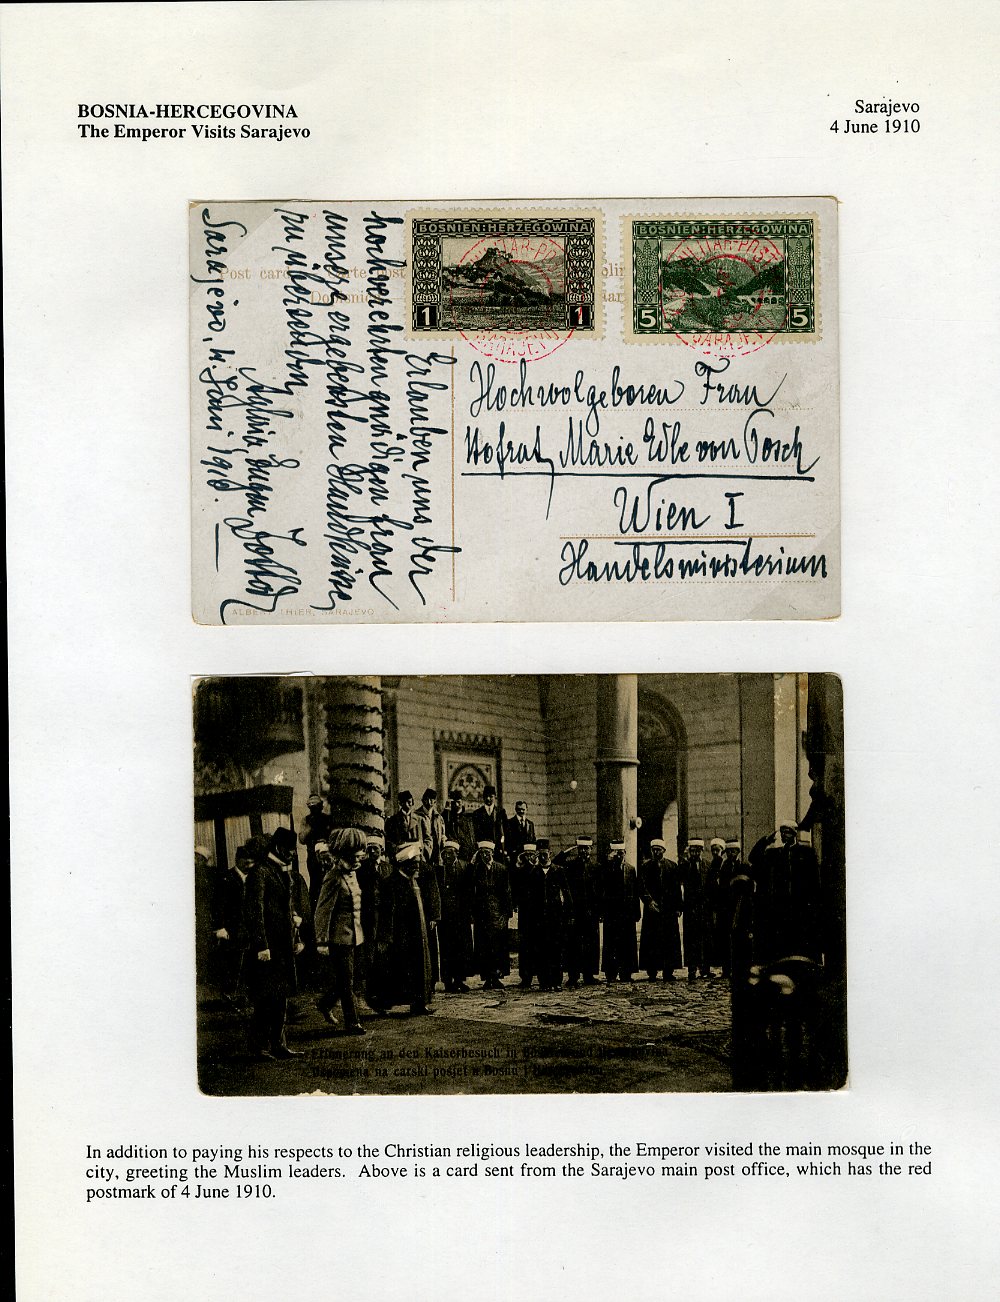 BOSNIA-HERCEGOVINA
The Emperor Visits Sarajevo
Sarajevo
4 June 1910
Post card
Carte post
BOSNIEN:HERZEGOWINA
1 1
BOSNIEN:HERZEGOWINA
5 5
MILITAR-POST
SARAJEVO
MILITAR-POST
SARAJEVO
Erlauben uns der
hochverehrten gnädigen Frau
unsere ergebensten Handküsse
zu übersenden
Sarajevo, 4. Juni 1910.
Hochwolgeboren Frau
Hofrat Marie Edle von Posch
Wien I
Handelsministerium
ALBERT THIER, SARAJEVO
Erinnerung an den Kaiserbesuch in
Uspomena na carski posjet u Bosnu i
In addition to paying his respects to the Christian religious leadership, the Emperor visited the main mosque in the
city, greeting the Muslim leaders. Above is a card sent from the Sarajevo main post office, which has the red
postmark of 4 June 1910.